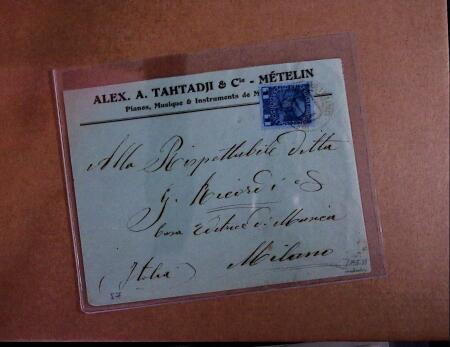 ALEX. A. TAHTADJI & Cie - MÉTELIN
Pianos, Musique & Instruments de M
Alla Rispettabile ditta
G. Ricordi & S
Casa Editrice di Musica
Milano
(Italia)
57